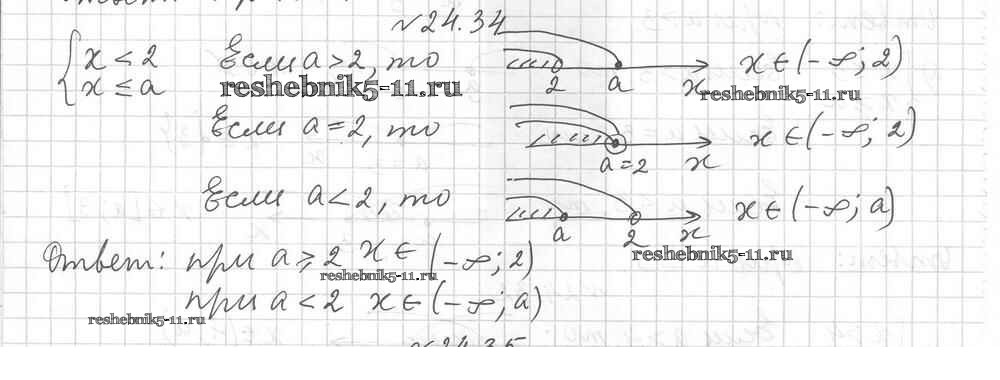 №24.34
{ x < 2 Если a > 2, то 2 a x x ∈ (-∞; 2)
x ≤ a reshebnik5-11.ru reshebnik5-11.ru
Если a = 2, то a = 2 x x ∈ (-∞; 2)
Если a < 2, то a 2 x x ∈ (-∞; a)
reshebnik5-11.ru
Ответ: при a ⩾ 2 x ∈ (-∞; 2)
reshebnik5-11.ru
при a < 2 x ∈ (-∞; a)
reshebnik5-11.ru
№24.35